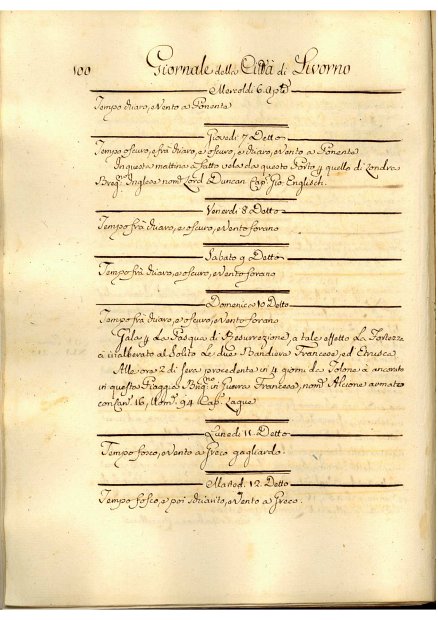 100
Giornale della Città di Livorno
Mercoldi 6. Aple
Tempo chiaro, e Vento a Ponente
Giovedi 7 Detto
Tempo oscuro, e frà chiaro, e oscuro, e chiaro, e Vento a Ponente
In questa mattina à fatto vela da questo Porto p quello di Londra
Brigno Inglese nomo Lord Duncan Capo Gio. Englisch.
Venerdi 8 Detto
Tempo frà chiaro, e oscuro, e Vento forano
Sabato 9 Detto
Tempo frà chiaro, e oscuro, e Vento forano
Domenica 10 Detto
Tempo frà chiaro, e oscuro, e Vento forano
Gala p La Pasqua di Resurrezione, a tale effetto La Fortezza
à inalberato al Solito Le due Bandiera Francese, ed Etrusca
Alle ore 2 di sera procedente in 4 giorni da Tolone à ancorato
in questa Spiaggia Brigno in guerra Francese, nomo Alcione armato
con Can. 16, Uom. 94 Cap. Laque
Lunedi 11. Detto
Tempo fosco, e Vento a Greco gagliardo
Marted. 12. Detto
Tempo fosco, e poi schiarito, e Vento a Greco.